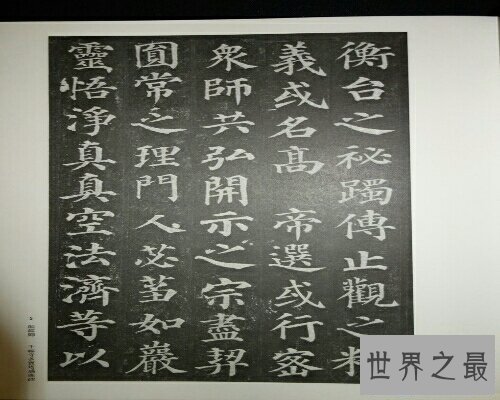 衡台之秘躅傳止觀之精
義或名髙 帝選或行密
衆師共弘開示之宗盡契
圓常之理門人苾蒭如巖
靈悟淨真真空法濟等以
世界之最